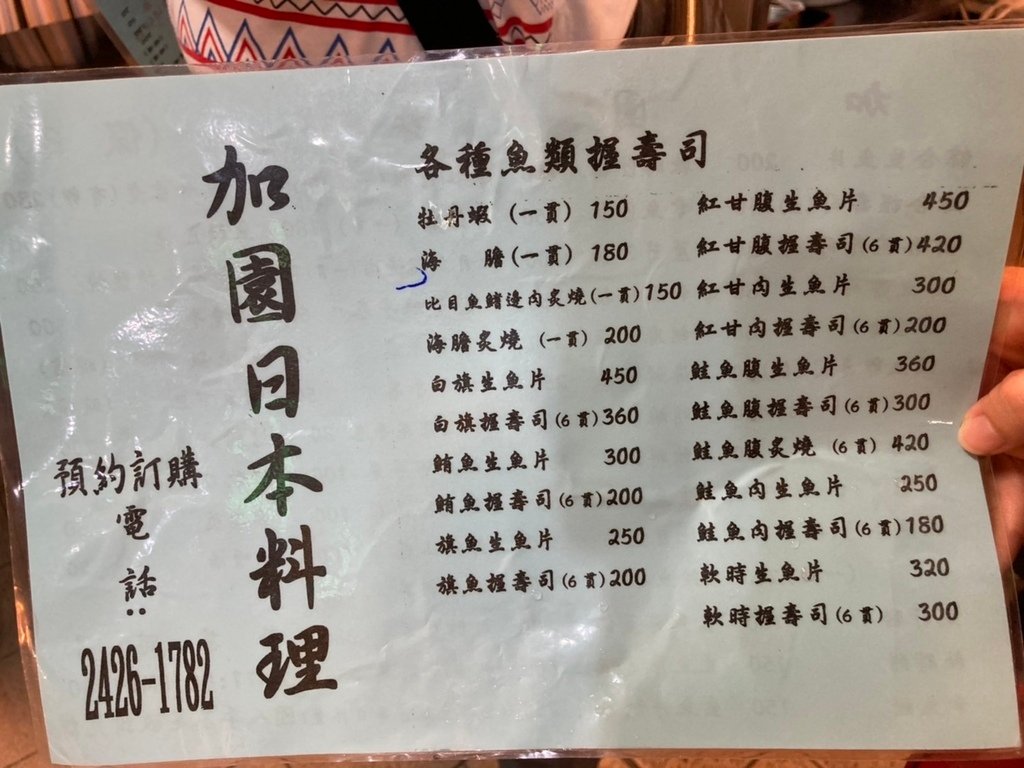 加園日本料理
預約訂購
電
話:
2426-1782
各種魚類握壽司
牡丹蝦 (一貫) 150
海 膽(一貫) 180
比目魚鰭邊肉炙燒(一貫)150
海膽炙燒 (一貫) 200
白旗生魚片 450
白旗握壽司(6貫)360
鮪魚生魚片 300
鮪魚握壽司(6貫)200
旗魚生魚片 250
旗魚握壽司(6貫)200
紅甘腹生魚片 450
紅甘腹握壽司(6貫)420
紅甘肉生魚片 300
紅甘肉握壽司(6貫)200
鮭魚腹生魚片 360
鮭魚腹握壽司(6貫)300
鮭魚腹炙燒 (6貫) 420
鮭魚肉生魚片 250
鮭魚肉握壽司(6貫)180
軟時生魚片 320
軟時握壽司(6貫) 300